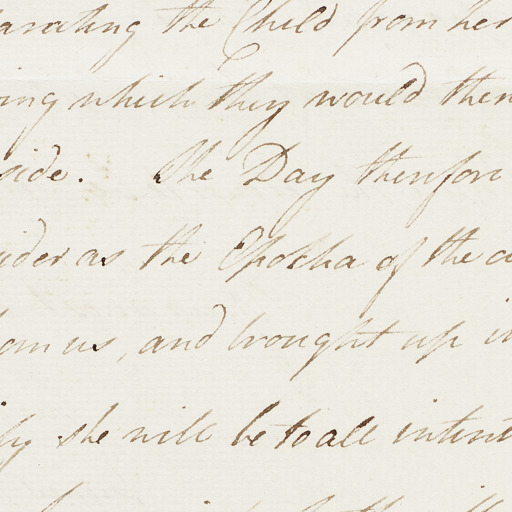 arating the Child from her
ing which they would then
side. The Day therefore
ider as the Epocha of the
from us, and brought up in
she will be to all intent